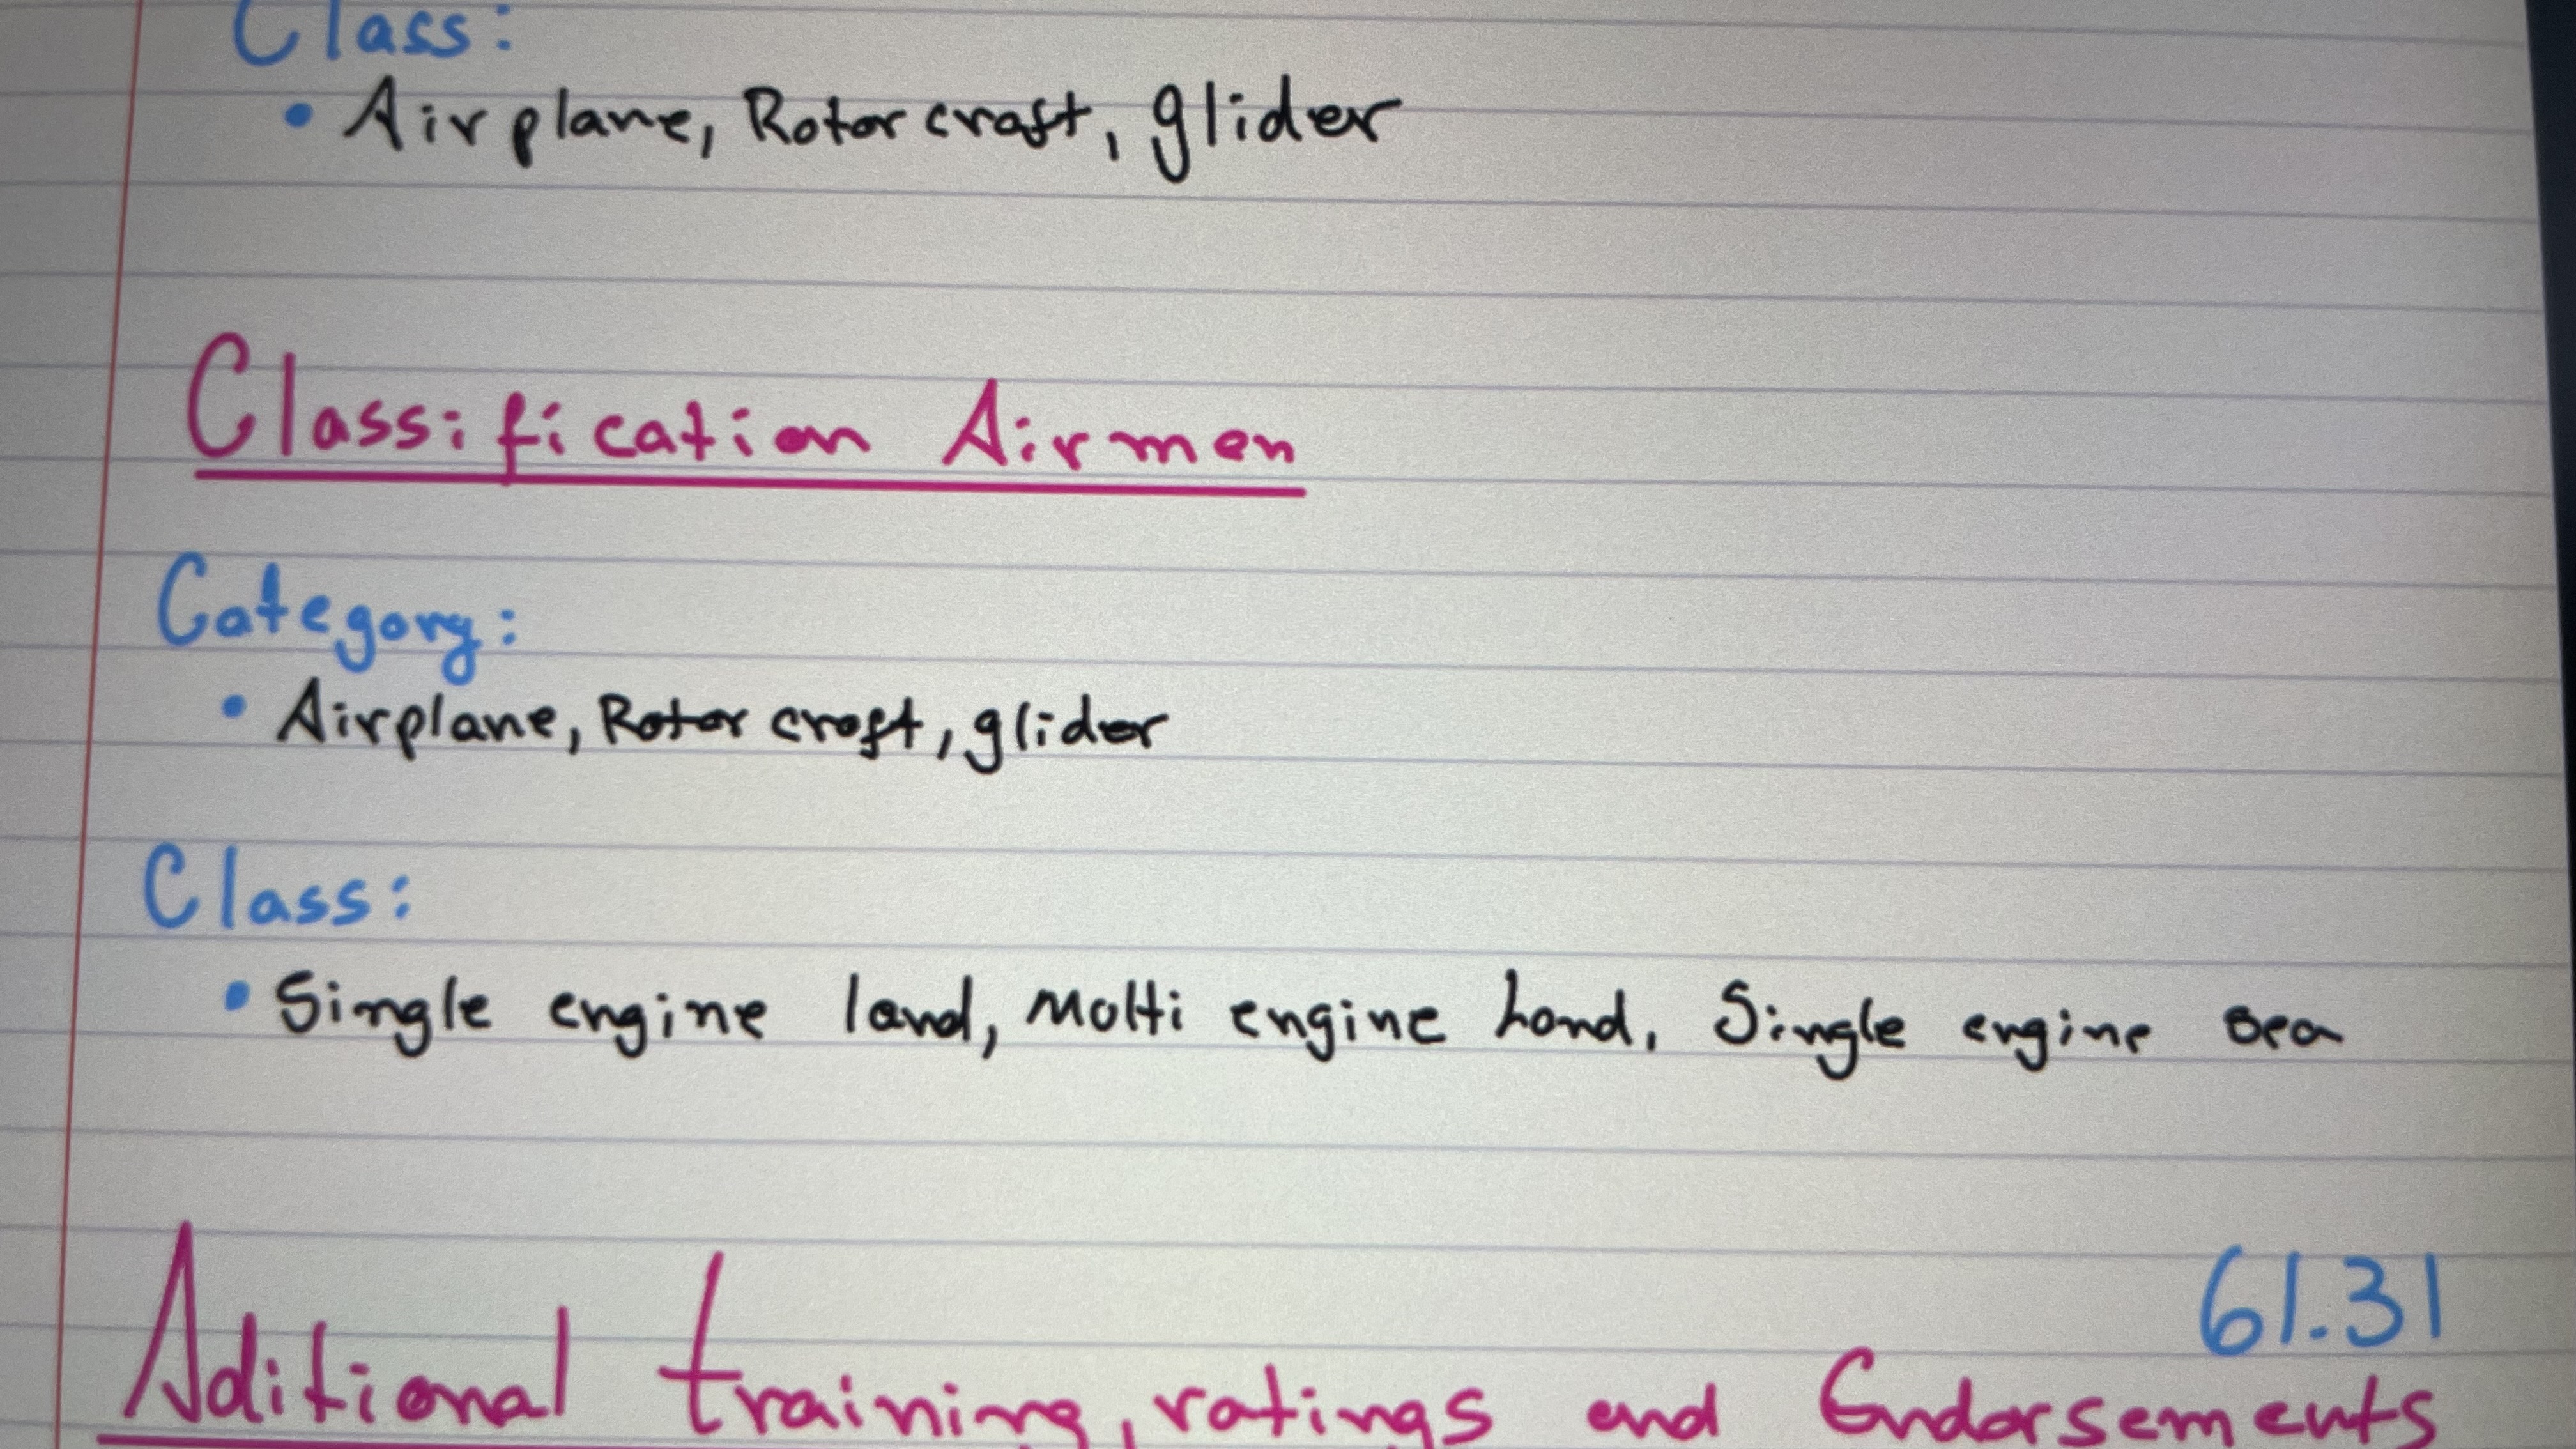 Class:
• Airplane, Rotor craft, glider
Classification Airmen
Category:
• Airplane, Rotor craft, glider
Class:
• Single engine land, Molti engine Land, Single engine sea
61.31
Aditional training, ratings and Endorsements